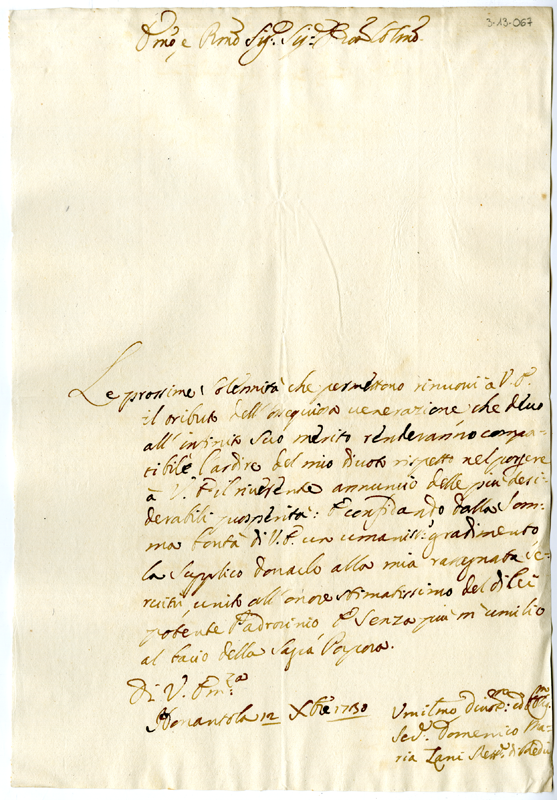 3-13-067
Emo, e Rmo Sig.r Sig.r Pron Colmo
Le prossime Solennità che permettono rinuovi à V. E.
il tributo dell'ossequiosa venerazione che devo
all'infinito Suo merito renderanno compa-
tibile l'ardire del mio divoto rispetto nel porgere
à V. E. il riverente annuncio delle più desi-
derabili prosperità: E confidando dalla Som-
ma bontà di V. E. un umaniss.o gradimento
la Supplico donarlo alla mia rassegnata Ser-
vitù, unito all'onore stimatissimo del di lei
potente Padrocinio E Senza più m'umilio
al bacio della Sagra Porpora.
Di V. Em.za
Nonantola 12 Xbre 1730
Umilmo Divot.mo ed
Ser.e Domenico Ma-
ria Zani